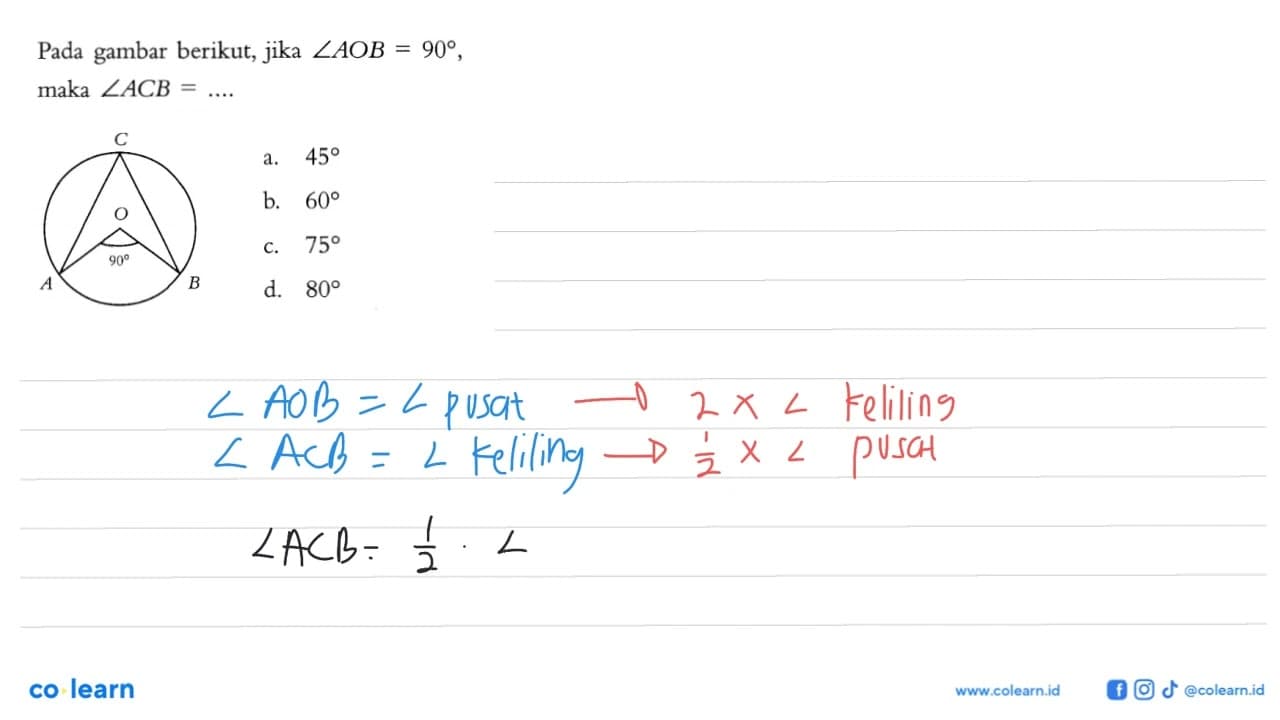 Pada gambar berikut, jika ∠AOB = 90°,
maka ∠ACB = ....
C
O
90°
A
B
a. 45°
b. 60°
c. 75°
d. 80°
∠ AOB = ∠ pusat → 2 × ∠ keliling
∠ ACB = ∠ keliling → 1/2 × ∠ pusat
∠ACB = 1/2 . ∠
co learn
www.colearn.id
@colearn.id